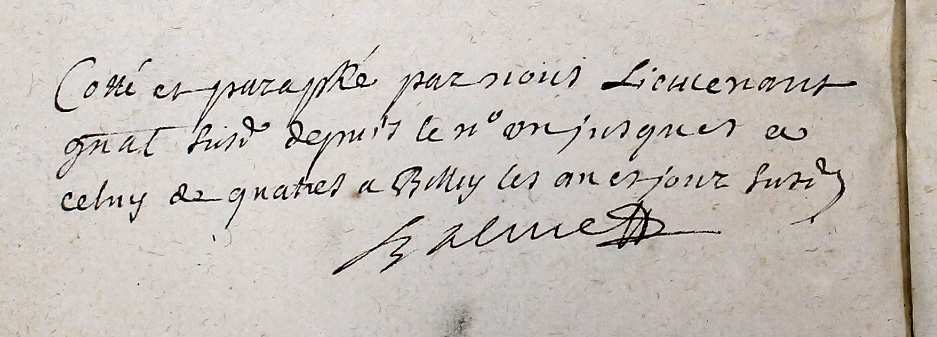 Cotté et paraphé par nous Lieutenant
gnal susd depuis le n° un jusques a
celuy de quatres a Billy les an et jour susd